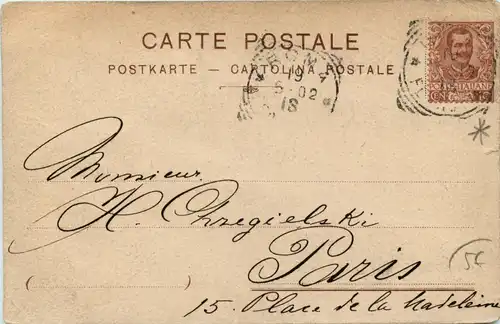 CARTE POSTALE
POSTKARTE – CARTOLINA POSTALE
19
5-02
18
POSTE ITALIANE
Monsieur
H. Chzegielski
Paris
15. Place de la Madeleine
5€